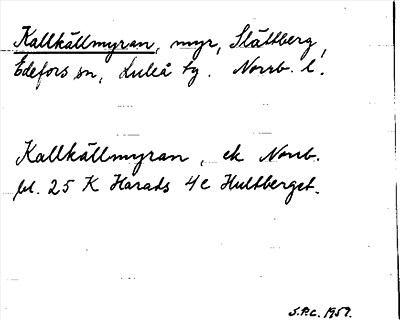 Kallkällmyran, myr, Slättberg,
Edefors sn, Luleå tg. Norrb. l.
Kallkällmyran, ek Norrb.
bl. 25 K Harads 4c Hultberget.
S.P.C. 1959.